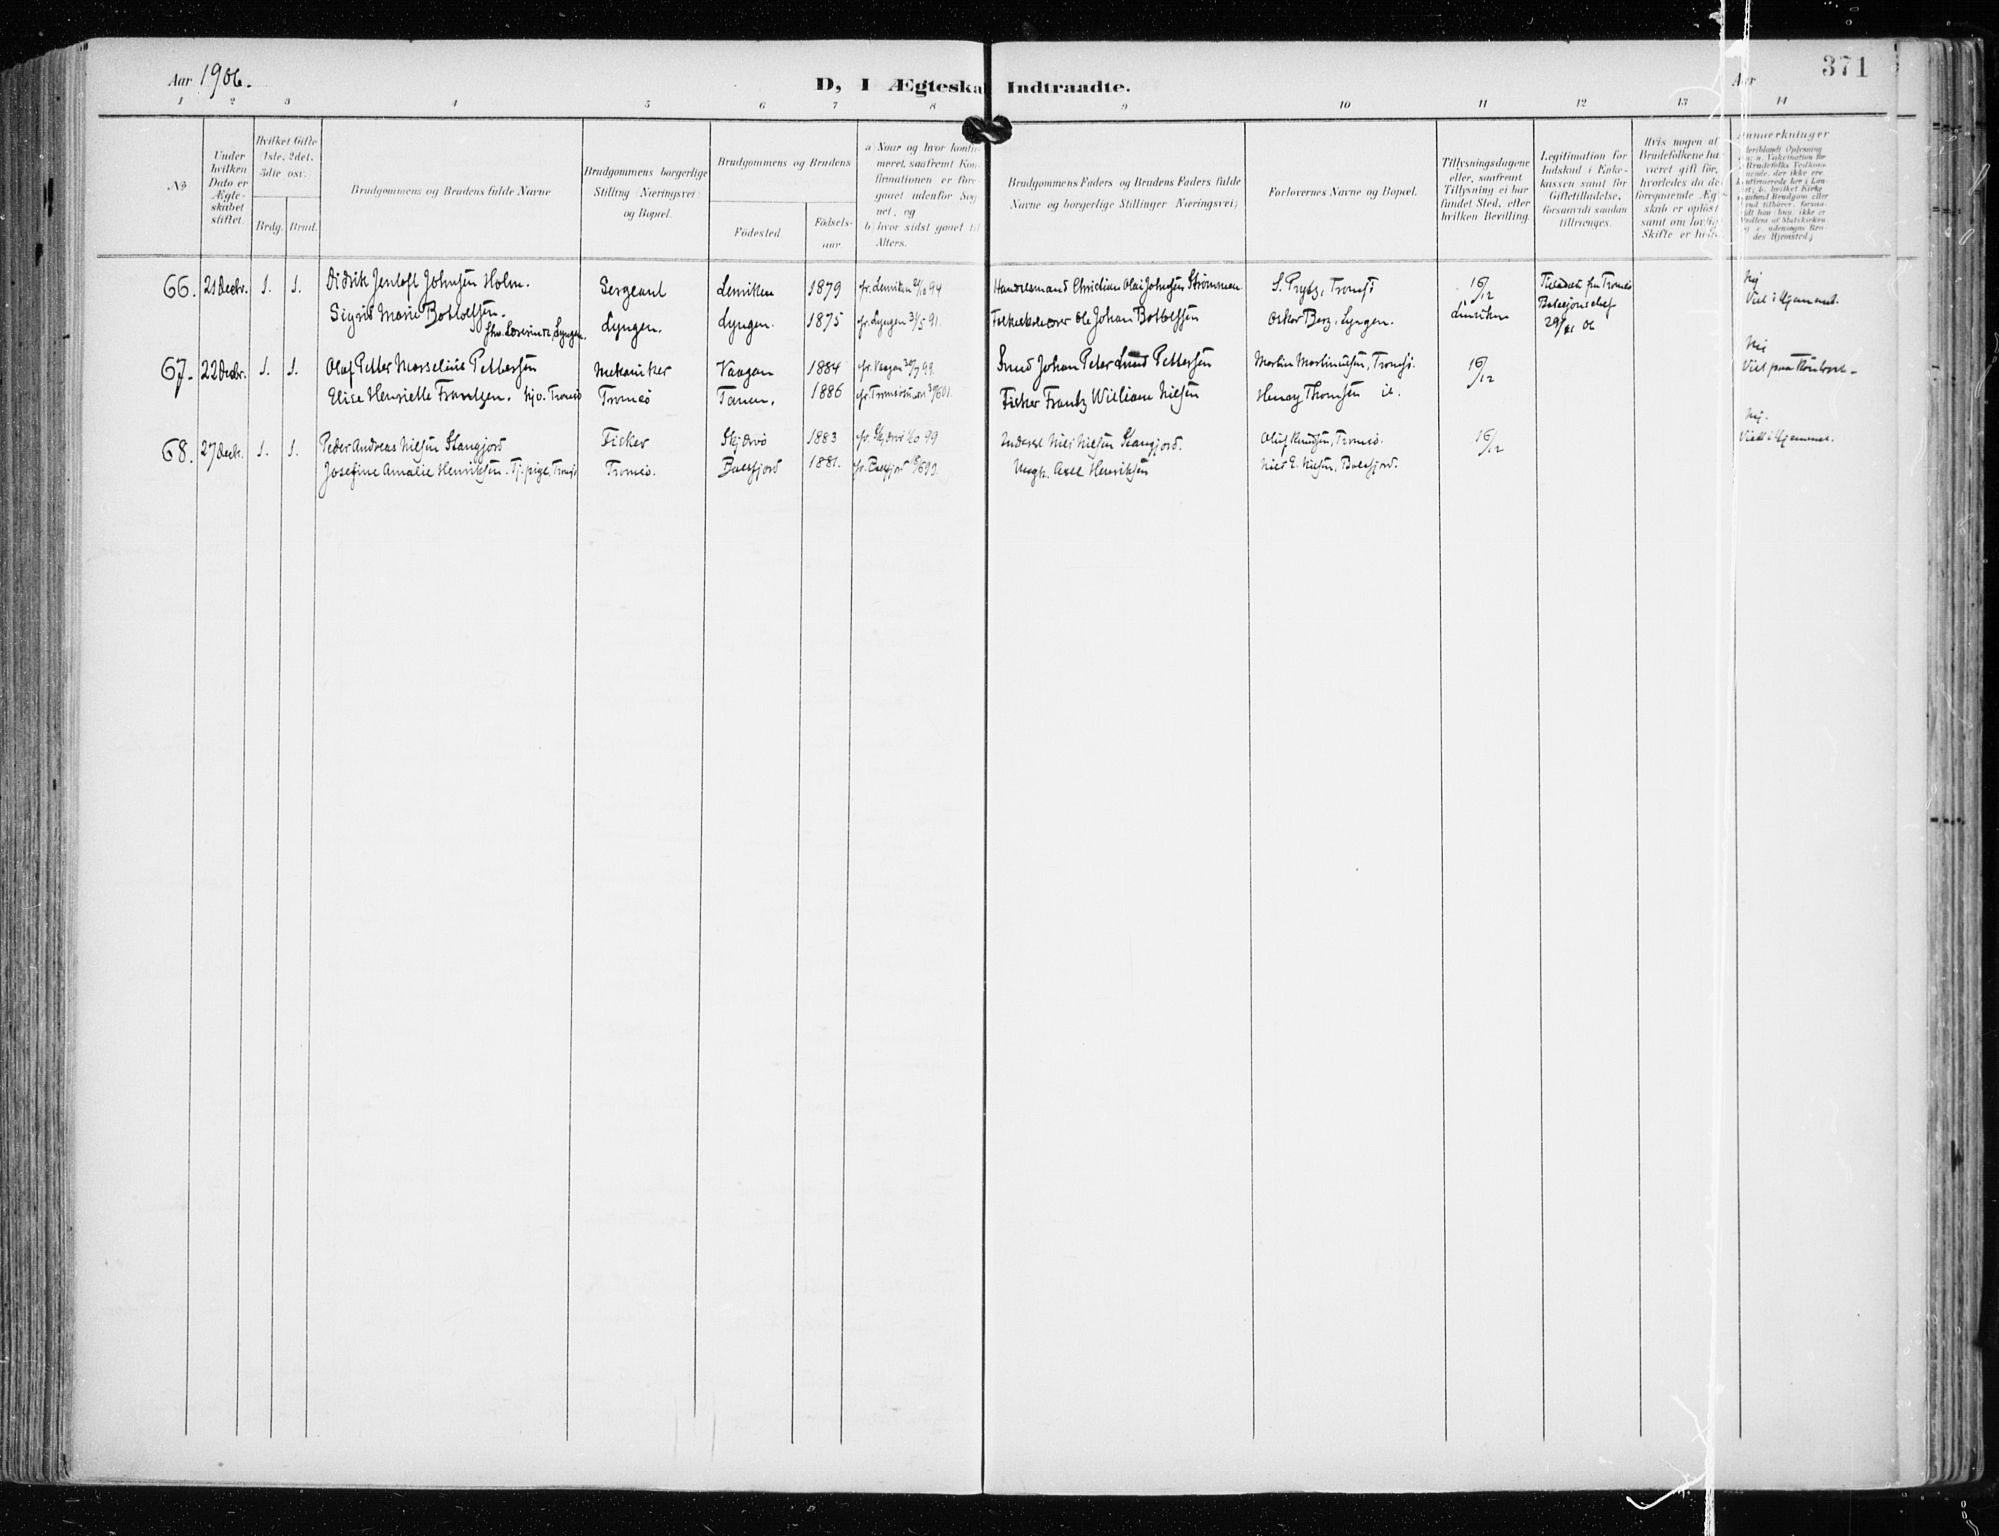 Aar 1906.
D, I Ægteska Indtraadte.
Aar
371
1 2 3 4 5 6 7 8 9 10 11 12 13 14
No
Under hvilken Dato er Ægteskabet stiftet.
Hvilket Gifte 1ste, 2det, 3die osv.
Brdg. Brud.
Brudgommens og Brudens fulde Navne
Brudgommens borgerlige Stilling (Næringsvei) og Bopæl.
Brudgommens og Brudens
Födested.
Födselsaar.
a) Naar og hvor konfirmeret, saafremt Konfirmationen er foregaaet udenfor Sognet, og
b) hvor sidst gaaet til Alters.
Brudgommens Faders og Brudens Faders fulde Navne og borgerlige Stillinger Næringsvei)
Forlovernes Navne og Bopæl.
Tillysningsdagene eller, saafremt Tillysning ei har fundet Sted, efter hvilken Bevilling.
Legitimation for Indskud i Enkekassen samt for Giftetilladelse, forsaavidt saadan tiltrænges.
Hvis nogen af Brudefolkene har været gift før, hvorledes da de foregaaende Ægteskab er opløst samt om lovligt Skifte er holdt
Anmærkninger
66. 21 Decbr. 1. 1. Didrik Jentoft Johnsen Holm. Sergeant Lenviken 1879 fr. Lenviken 94 Handelsmand Christian Olai Johnsen Strømmen S. Prytz, Tromsö 16/12 Nei
Sigrid Marie Bottolfsen. Lyngen. Lyngen. 1875 fr. Lyngen 31/5 91. Ole Johan Bottolfsen Oskar Berg, Lyngen. Viet i Hjemmet.
Lyngen. 29/11 06
67. 22 Decbr. 1. 1. Olaf Petter Marselius Pettersen Mekaniker Vaagan 1884 fr. Vaagan 99. Smed Johan Peter Lund Pettersen Martin Martinussen, Tromsö. 16/12 Nei
Elise Henriette Frantzen. Tromsö Tromsö Tanen. 1886 Fisker Frantz William Nilsen Henry Thomsen ib. Viet paa Kontoret.
68. 27 Decbr. 1. 1. Peder Andreas Nilsen Stangjord Fisker Skjærvö 1883 fr. Skjervö 99 Inderst Nils Nilsen Stangjord. Oluf Knudsen, Tromsö. 16/12 Nei.
Josefine Amalie Henriksen. Tj.pige, Tromsö Tromsö. Balsfjord 1881. fr. Balsfjord Axel Henriksen Nils E. Nilsen, Balsfjord. Viet i Hjemmet.